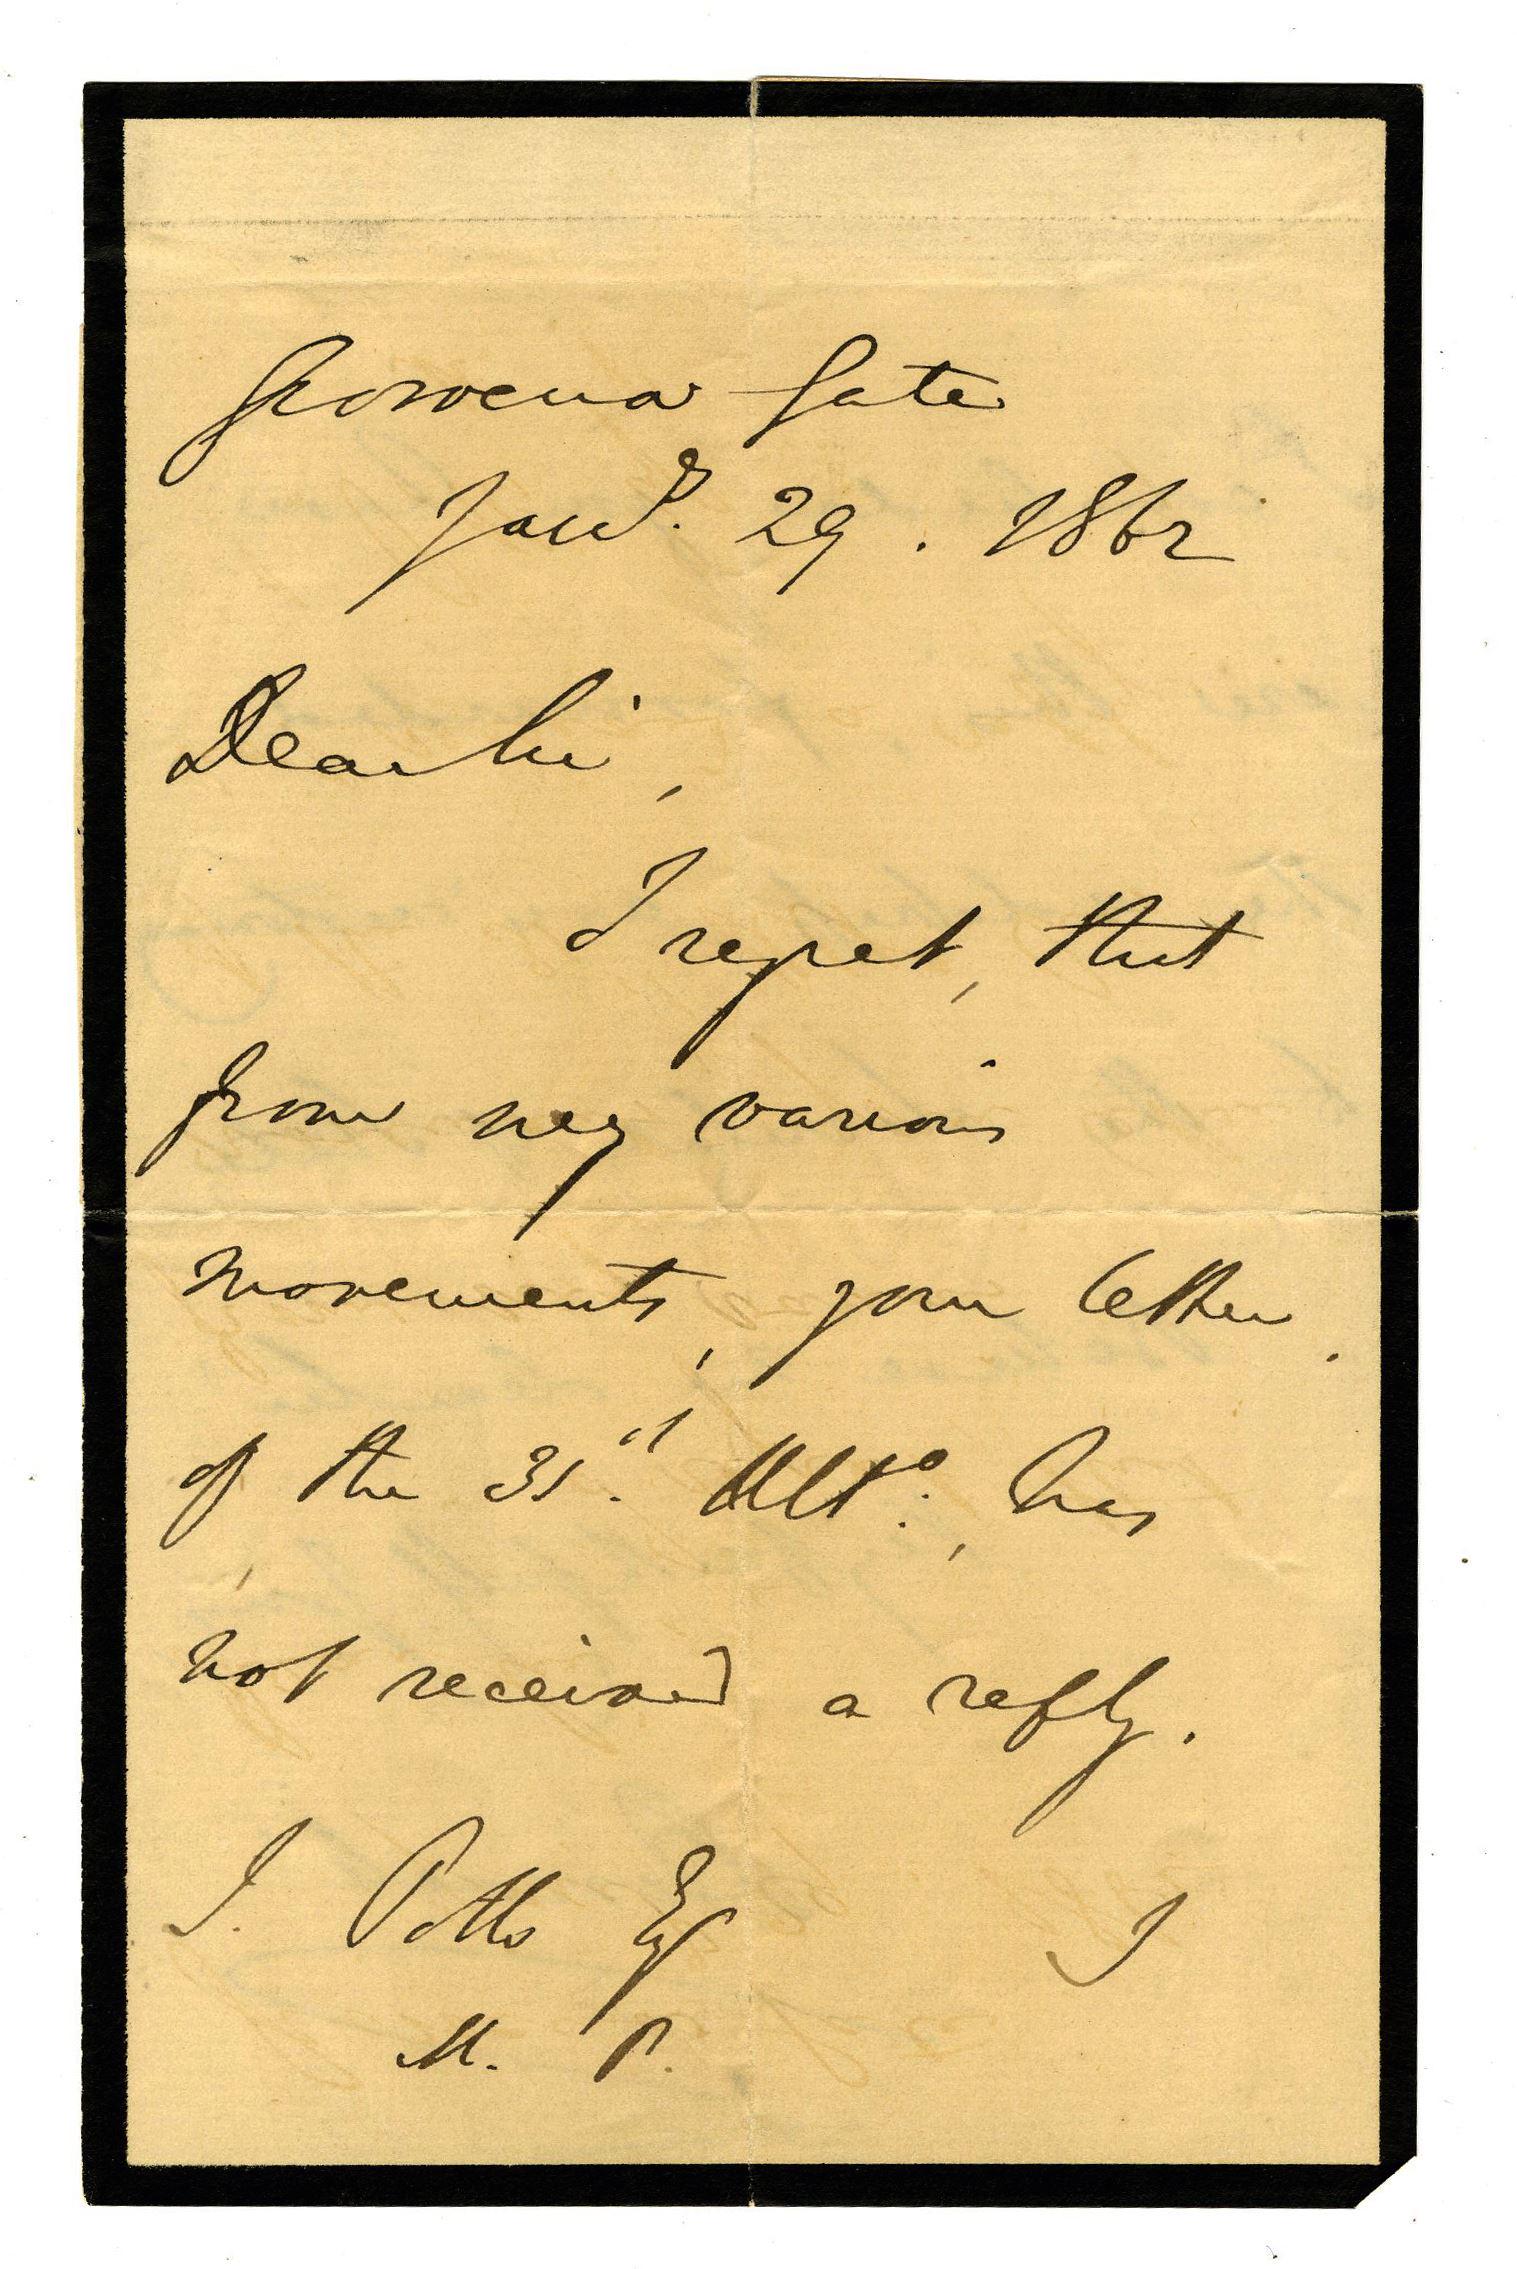 Grosvenor Gate
Jany. 29. 1862
Dear Sir,
I regret, that
from my various
movements, your letter
of the 31st. Ulto., has
not received a reply.
I
Potts Esq
M. P.